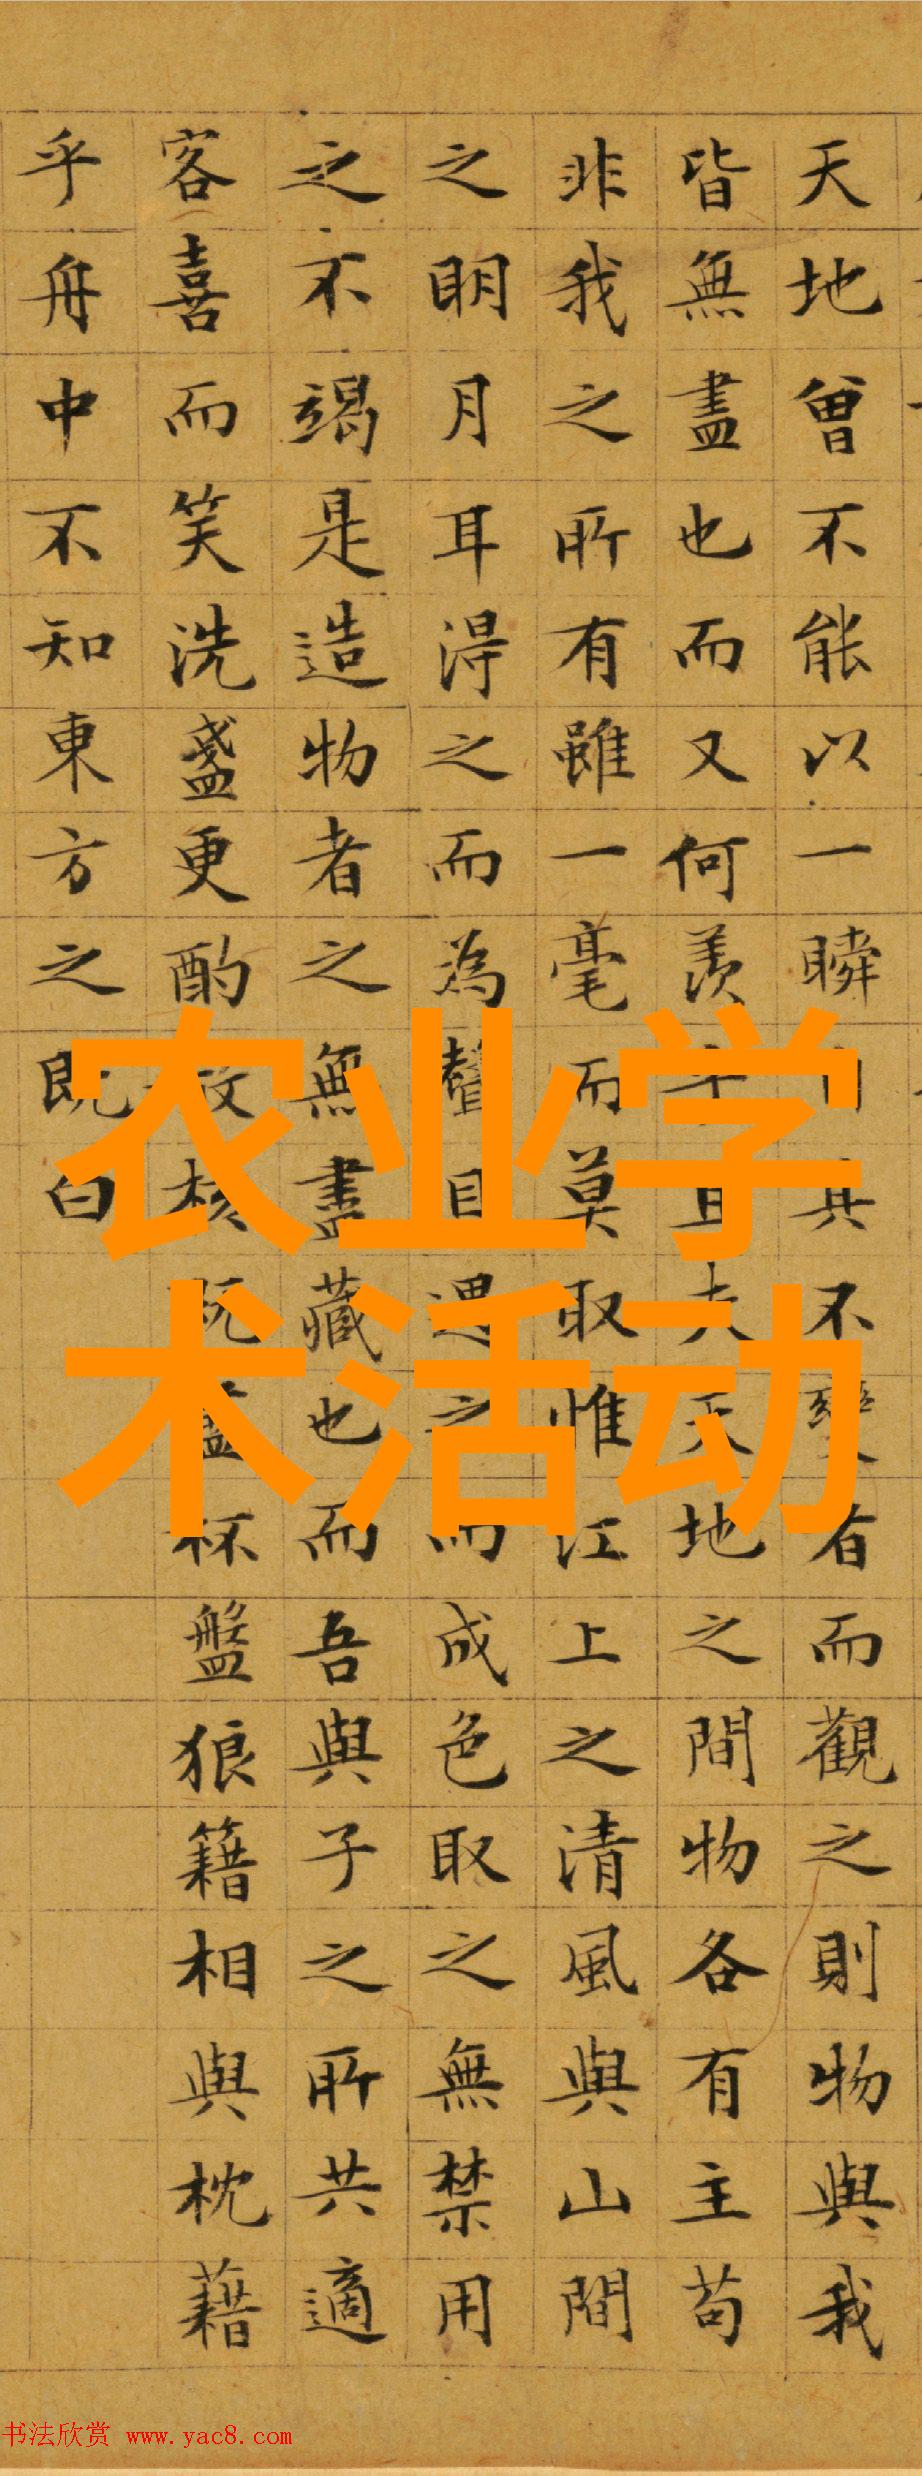 天地曾不能以一瞬自其不變者而觀之則物與我
皆無盡也而又何羨乎且夫天地之間物各有主苟
非我之所有雖一毫而莫取惟江上之清風與山間
之明月耳得之而為聲目遇之而成色取之無禁用
之不竭是造物者之無盡藏也而吾與子之所共適
客喜而笑洗盞更酌核既盡杯盤狼籍相與枕藉
乎舟中不知東方之既白
农业学
术活动
书法欣赏 www.yac8.com